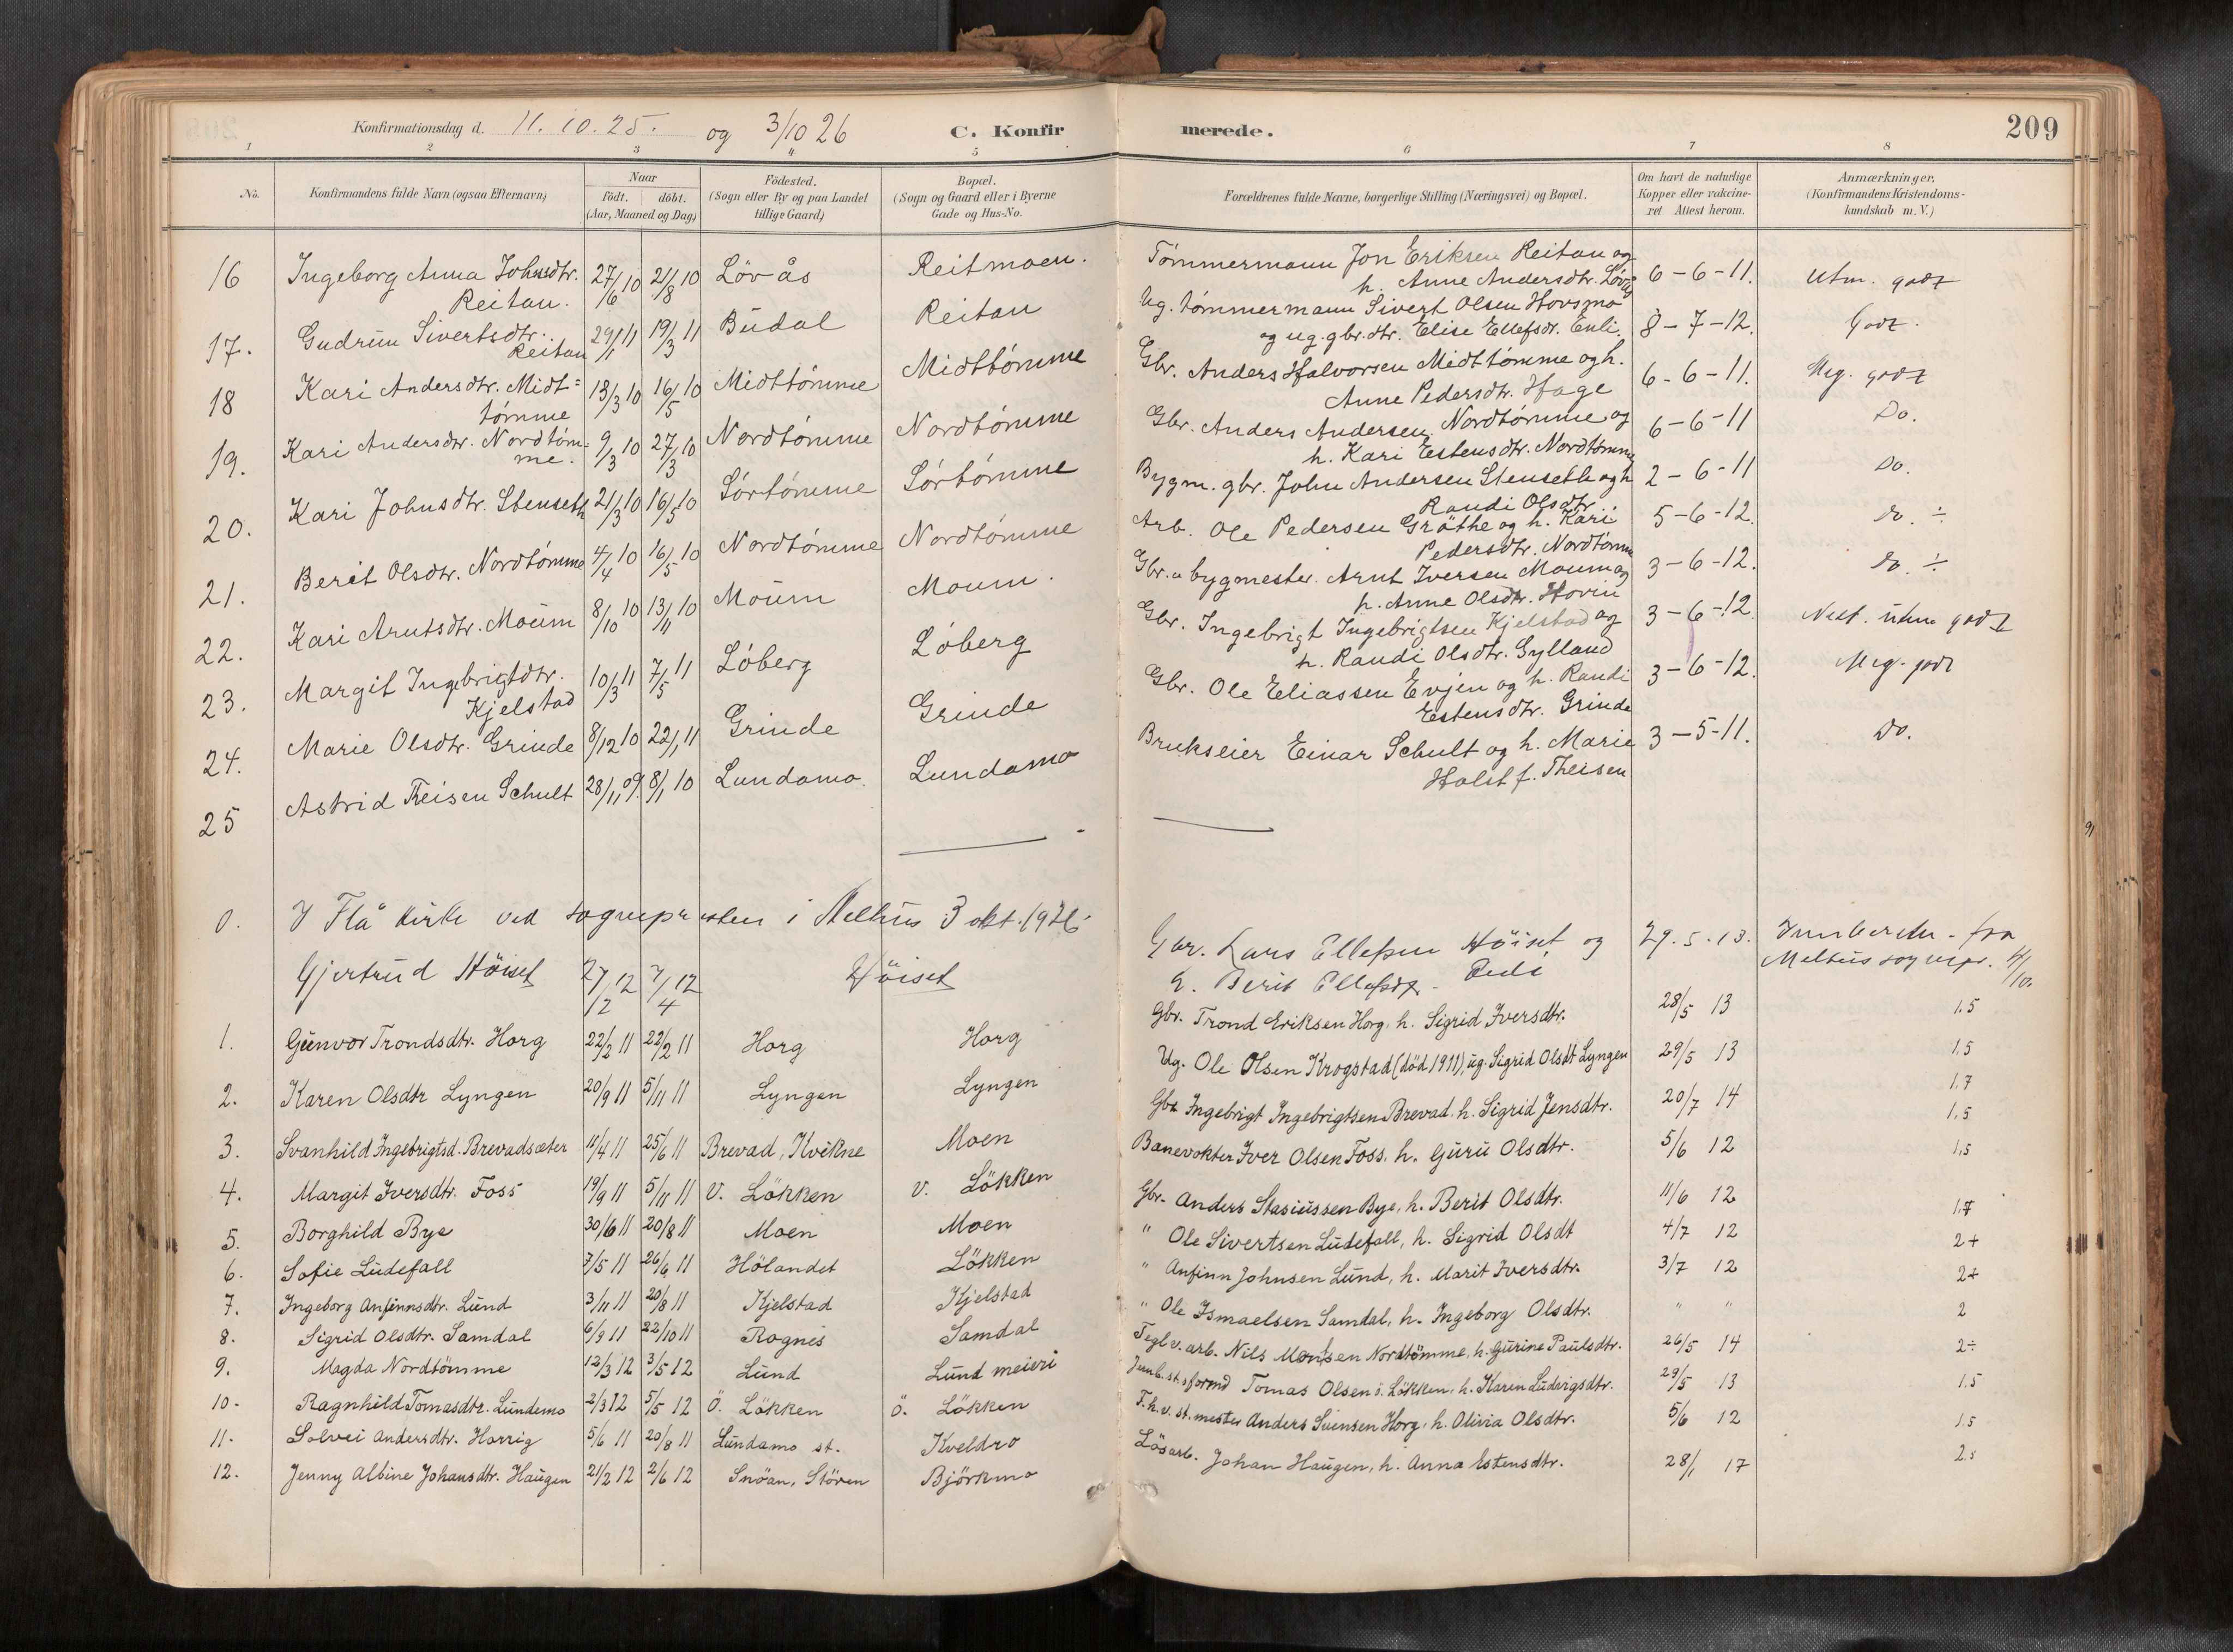 Konfirmationsdag d. 11.10.25. og 3/10 26 C. Konfir merede. 209
1 2 3 4 5 6 7 8
No. Konfirmandens fulde Navn (ogsaa Efternavn) Naar födt. döbt. (Aar, Maaned og Dag) Födested. (Sogn eller By og paa Landet tillige Gaard) Bopæl. (Sogn og Gaard eller i Byerne Gade og Hus-No. Forældrenes fulde Navne, borgerlige Stilling (Næringsvei) og Bopæl. Om havt de naturlige Kopper eller vakcineret Attest herom. Anmærkninger, (Konfirmandens Kristendomskundskab m.V.)
16 Ingeborg Anna Johnsdtr. 27/6 10 21/8 10 Lövås Reitmoen. Tömmermann Jon Eriksen Reitan og 6-6-11. Utm. godt
Reitan. h. Anne Andersdtr. Lövås
17. Gudrun Sivertsdtr. 29/1 11 19/3 11 Budal Reitan Ug. tömmermann Sivert Olsen Hovsmo 8-7-12. Godt.
Reitan og ug. gbr.dtr. Elise Ellefsdr. Enli.
18 Kari Andersdtr. Midt= 13/3 10 16/5 10 Midttömme Midttömme Gbr. Anders Halvorsen Midttömme og h. 6-6-11. Meg. godt
tömme Anne Pedersdtr. Hage
19. Kari Andersdtr. Nordtöm= 9/3 10 27/3 10 Nordtömme Nordtömme Gbr. Anders Andersen Nordtömme og 6-6-11 Do.
me. h. Kari Estensdtr. Nordtömme
20. Kari Johnsdtr. Stenseth 21/3 10 16/5 10 Sörtömme Sörtömme Bygm. gbr. John Andersen Stenseth og h 2-6-11 Do.
Randi Olsdtr.
21. Berit Olsdtr. Nordtömme 4/4 10 16/5 10 Nordtömme Nordtömme Arb. Ole Pedersen Gröthe og h. Kari 5-6-12. do. ÷
Pedersdtr. Nordtömme
22. Kari Arntsdtr. Moum 8/10 10 13/11 10 Moum Moum. Gbr. u bygmester. Arnt Iversen Moum og 3-6-12. do. ÷
h. Anne Olsdtr. Hovin
23. Margit Ingebrigtdtr. 10/3 11 7/5 11 Löberg Löberg Gbr. Ingebrigt Ingebrigtsen Kjelstad og 3-6-12. Nest. utm. godt
Kjelstad h. Randi Olsdtr. Gylland
24. Marie Olsdtr. Grinde 8/12 10 22/1 11 Grinde Grinde Gbr. Ole Eliassen Evjen og h. Randi 3-6-12. Meg. godt
Estensdtr. Grinde
25 Astrid Theisen Schult 28/11 09. 8/1 10 Lundamo. Lundamo Brukseier Einar Schult og h. Marie 3-5-11. Do.
Holst f. Theisen
0. I Flå kirke ved sognepresten i Melhus 3 okt. 1926.
Gjertrud Höiset 27/2 12 7/4 12 Höiset Gbr. Lars Ellefsen Höiset og 29.5.13. Innberetn. fra
h. Berit Ellefsdtr. Melhus sognepr. 4/10.
1. Gunvor Trondsdtr. Horg 22/2 11 22/2 11 Horg Horg Gbr. Trond Eriksen Horg, h. Sigrid Iversdtr. 28/5 13 1.5
2. Karen Olsdtr Lyngen 20/9 11 5/11 11 Lyngen Lyngen Ug. Ole Olsen Krogstad (död 1911), ug. Sigrid Olsdt Lyngen 29/5 13 1.5
1.7
3. Svanhild Ingebrigtsd. Brevadsæter 11/4 11 25/6 11 Brevad, Kvikne Moen Gbr Ingebrigt Ingebrigtsen Brevad. h. Sigrid Jensdtr. 20/7 14 1,5
4. Margit Iversdtr. Foss 19/9 11 5/11 11 V. Lökken V. Lökken Banevokter Iver Olsen Foss, h. Guru Olsdtr. 5/6 12 1,5
5. Borghild Bye 30/6 11 20/8 11 Moen Moen Gbr. Anders Stasiussen Bye, h. Berit Olsdtr. 11/6 12 1.7
6. Sofie Ludefall 7/5 11 26/6 11 Hölandet Lökken " Ole Sivertsen Ludefall, h. Sigrid Olsdt 4/7 12 2+
7. Ingeborg Anfinnsdtr. Lund 3/11 11 20/8 11 Kjelstad Kjelstad " Anfinn Johnsen Lund, h. Marit Iversdtr. 3/7 12 2+
8. Sigrid Olsdtr. Samdal 6/9 11 22/10 11 Rognes Samdal " Ole Ismaelsen Samdal, h. Ingeborg Olsdtr. " " 2
9. Magda Nordtömme 12/3 12 3/5 12 Lund Lund meieri Teglv. arb. Nils Monsen Nordtömme, h. Gurine Paulsdtr. 26/5 14 2÷
10. Ragnhild Tomasdtr. Lundemo 2/3 12 5/5 12 Ö. Lökken ö. Lökken Jernb.st.sformd Tomas Olsen ö. Lökken, h. Karen Ludvigsdtr. 29/5 13 1.5
11. Solvei Andersdtr. Horrig 5/6 11 20/8 11 Lundamo st. Kveldro T.h.v. st.mester Anders Svensen Horg, h. Olivia Olsdtr. 5/6 12 1.5
12. Jenny Albine Johansdtr. Haugen 21/2 12 2/6 12 Snöan, Stören Björkmo Lösarb. Johan Haugen, h. Anna Estensdtr. 28/1 17 2.5